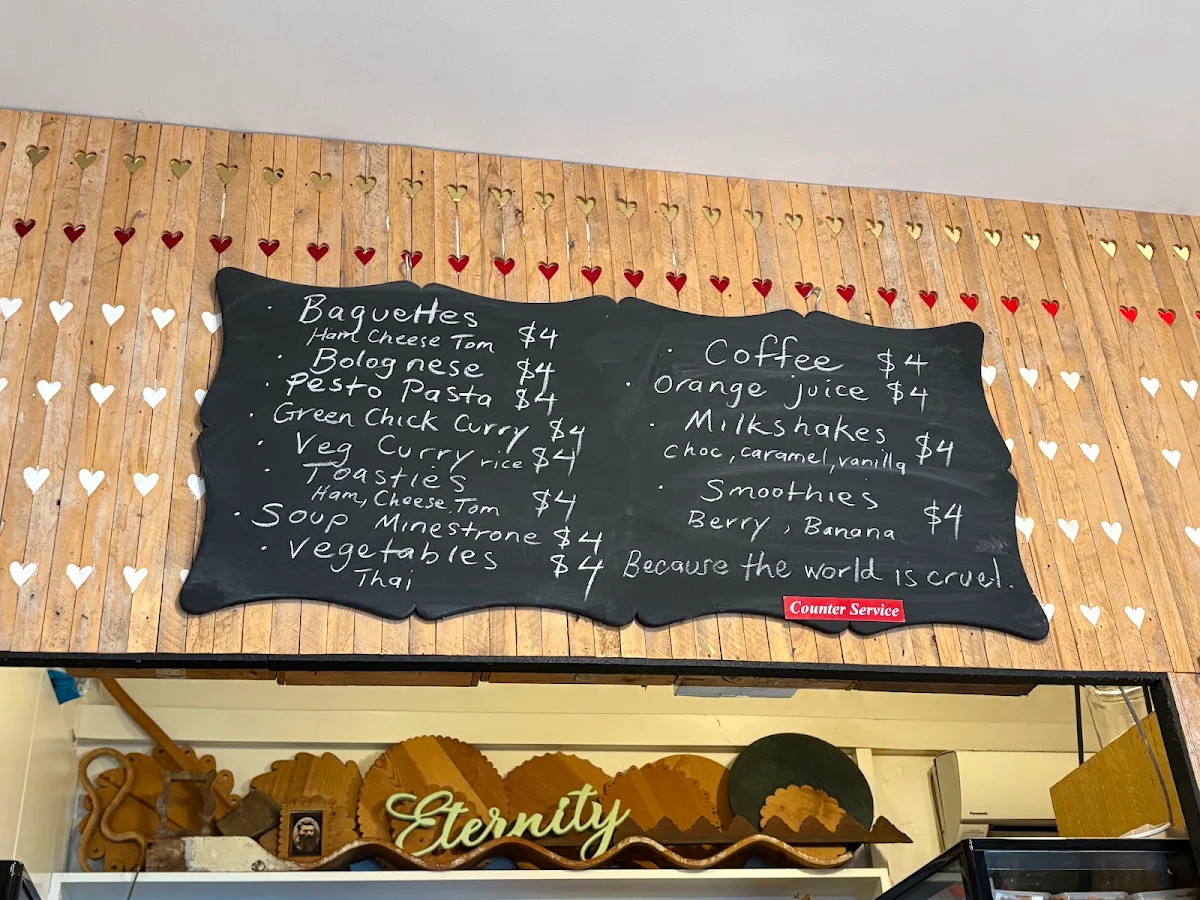 · Baguettes
Ham Cheese Tom $4
· Bolognese $4
· Pesto Pasta $4
· Green Chick Curry $4
· Veg Curry rice $4
· Toasties
Ham, Cheese, Tom $4
· Soup Minestrone $4
· Vegetables $4
Thai
· Coffee $4
· Orange juice $4
· Milkshakes
choc, caramel, vanilla $4
· Smoothies
Berry, Banana $4
Because the world is cruel.
Counter Service
Eternity
Panasonic